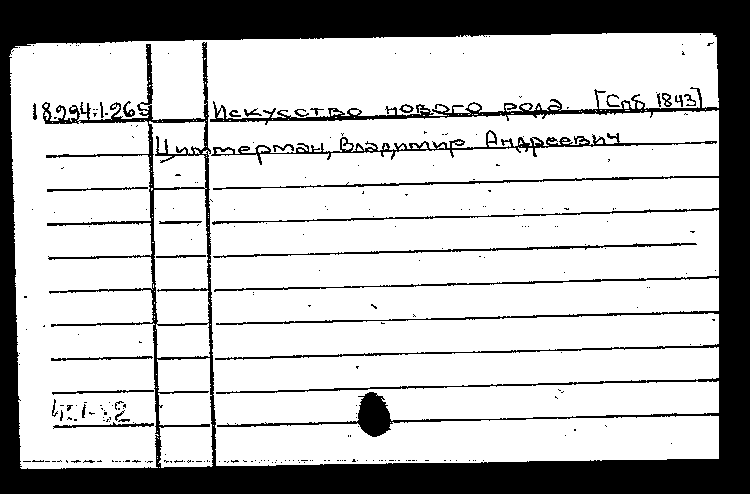 18.294.1.265 Искусство нового рода. [Спб, 1843]
Циммерман, Владимир Андреевич